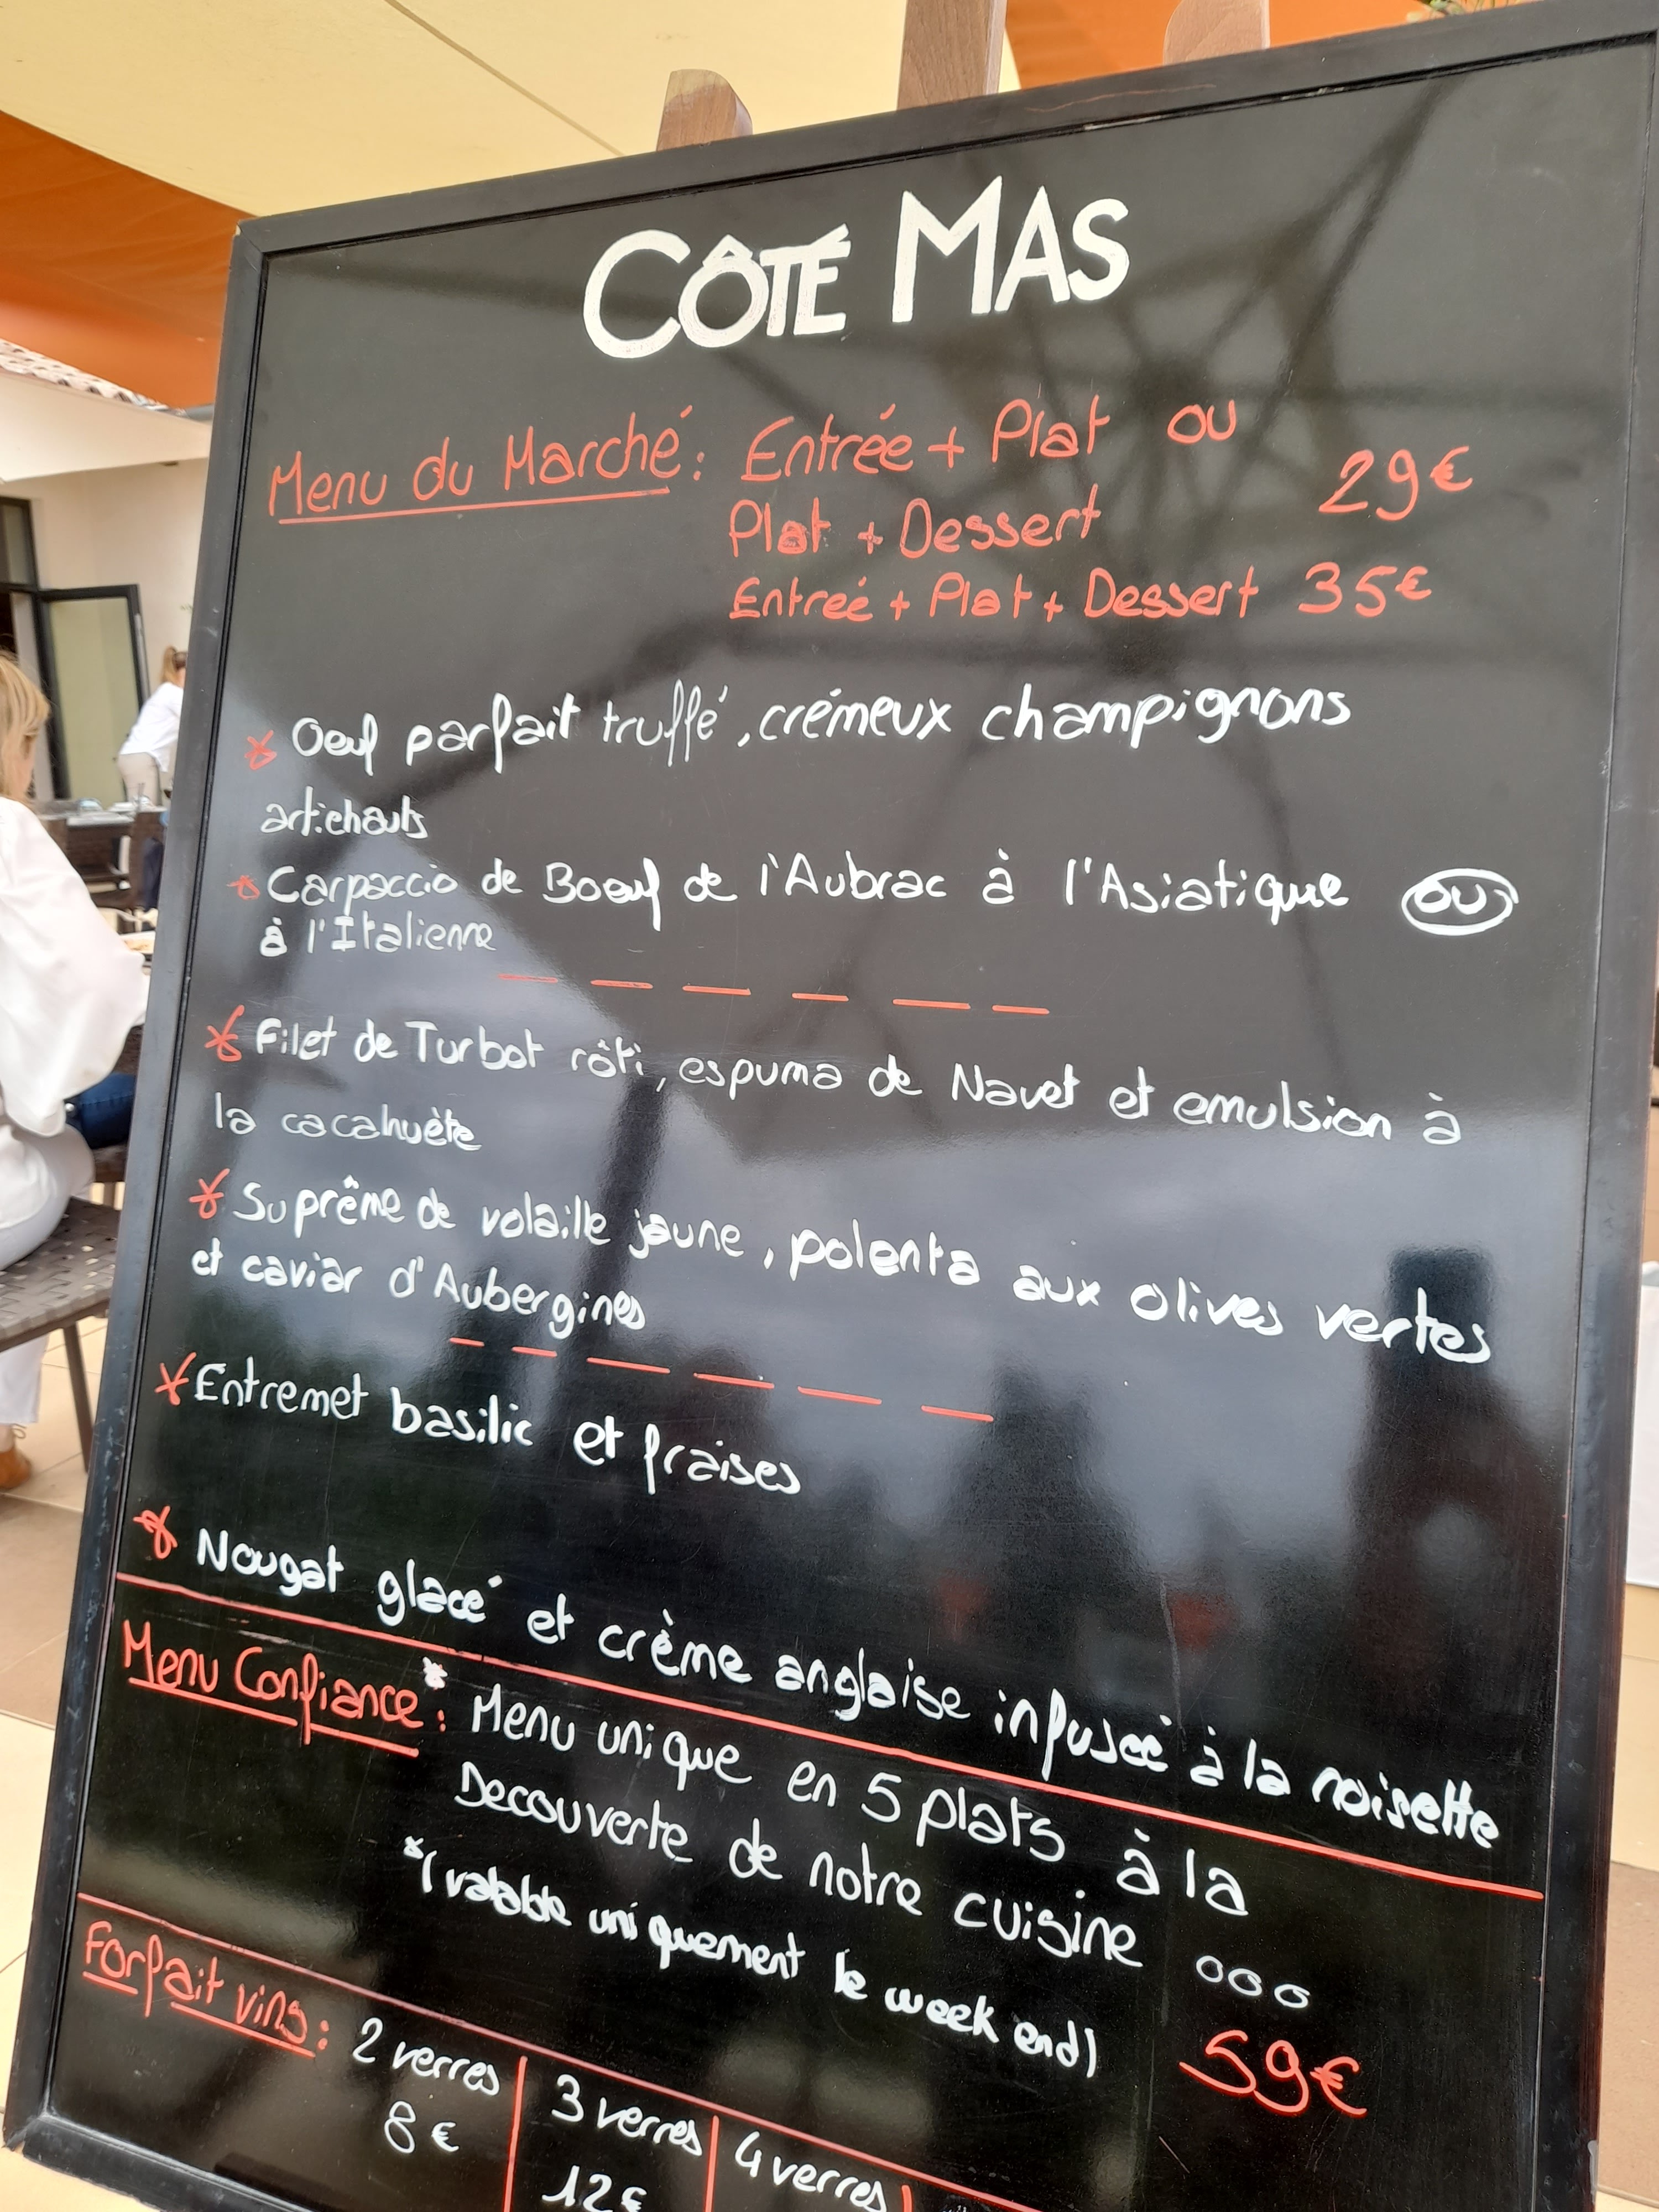 CÔTÉ MAS
Menu du Marché : Entrée + Plat ou
Plat + Dessert 29€
Entreé + Plat + Dessert 35€
* Oeuf parfait truffé, crémeux champignons
artichauts
* Carpaccio de Boeuf de l'Aubrac à l'Asiatique OU
à l'Italienne
* Filet de Turbot rôti, espuma de Navet et emulsion à
la cacahuète
* Suprême de volaille jaune, polenta aux olives vertes
et caviar d'Aubergines
* Entremet basilic et fraises
* Nougat glacé et crème anglaise infuseé à la noisette
Menu Confiance* : Menu unique en 5 plats à la
Decouverte de notre cuisine ooo
*(valable uniquement le week end) 59€
Forfait vins : 2 verres | 3 verres | 4 verres |
8€ 12€